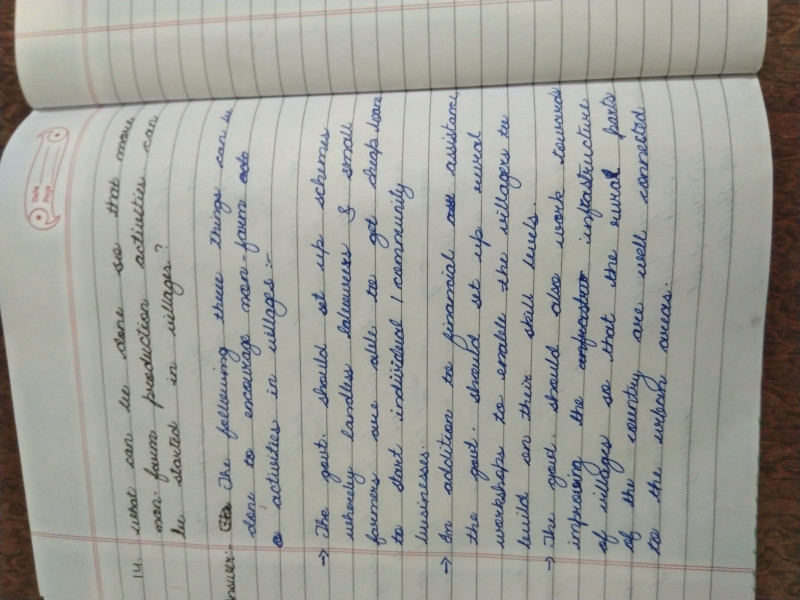 Date
Page
14. what can be done so that more
non-farm production activities can
be started in villages?
Answer: The following three things can be
done to encourage non-farm
activities in villages:-
→ The govt. should set up schemes
whereby landless labourers & small
farmers are able to get cheap loan
to start individual / community
businesses.
→ In addition to financial assistance,
the govt. should set up rural
workshops to enable the villagers to
build on their skill levels.
→ The govt. should also work towards
improving the infrastructure
of villages so that the rural parts
of the country are well connected
to the urban areas.